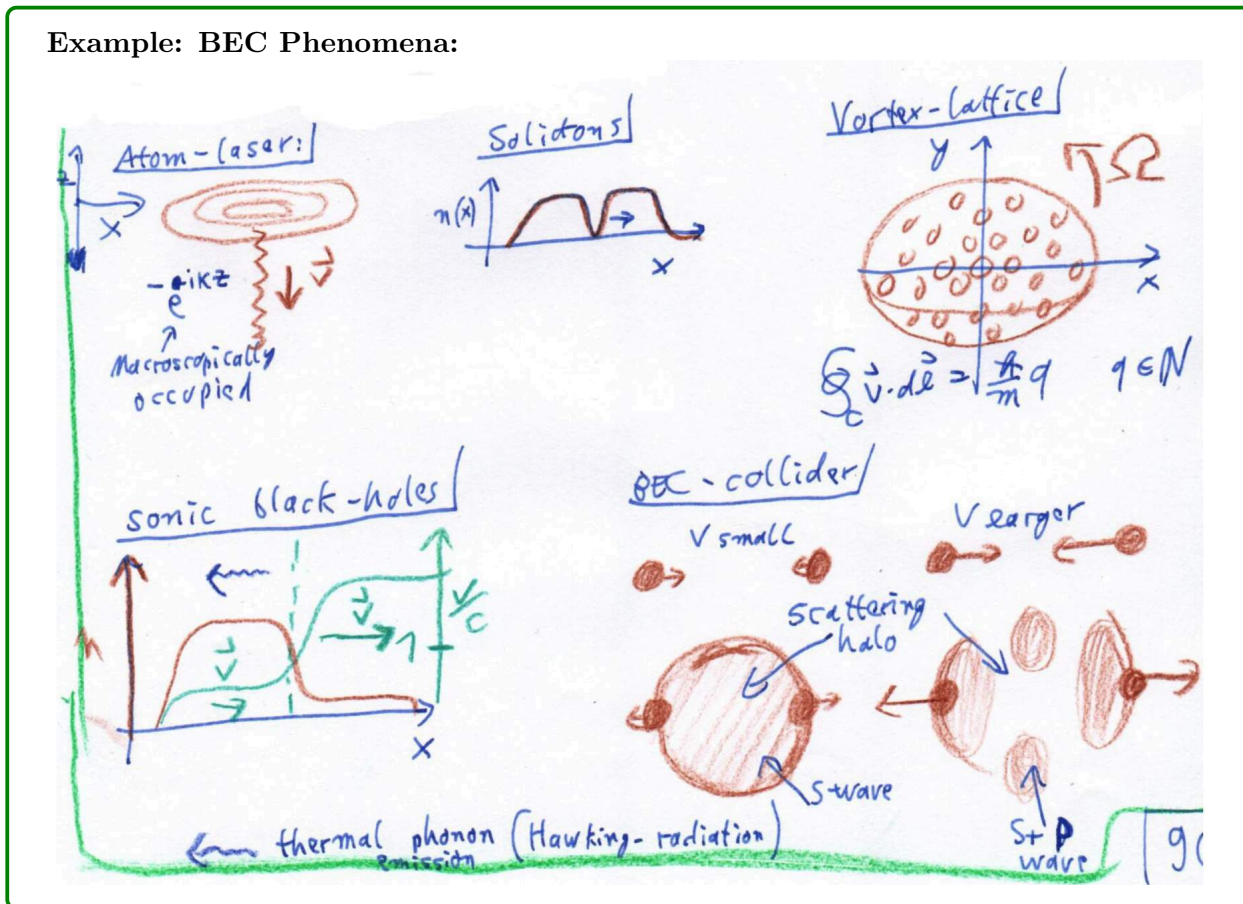 Example: BEC Phenomena:
Atom-laser:
z
X
v
-e^ikz
Macroscopically
occupied
Solidons
n(x)
X
Vortex-lattice
y
Ω
x
∮_c v⃗·dℓ⃗ = h/m q    q ∈ ℕ
sonic black-holes
n
v⃗
v⃗
v/c
1
X
thermal phonon (Hawking-radiation)
emission
BEC-collider
V small
V larger
Scattering
halo
S-wave
S+P
wave